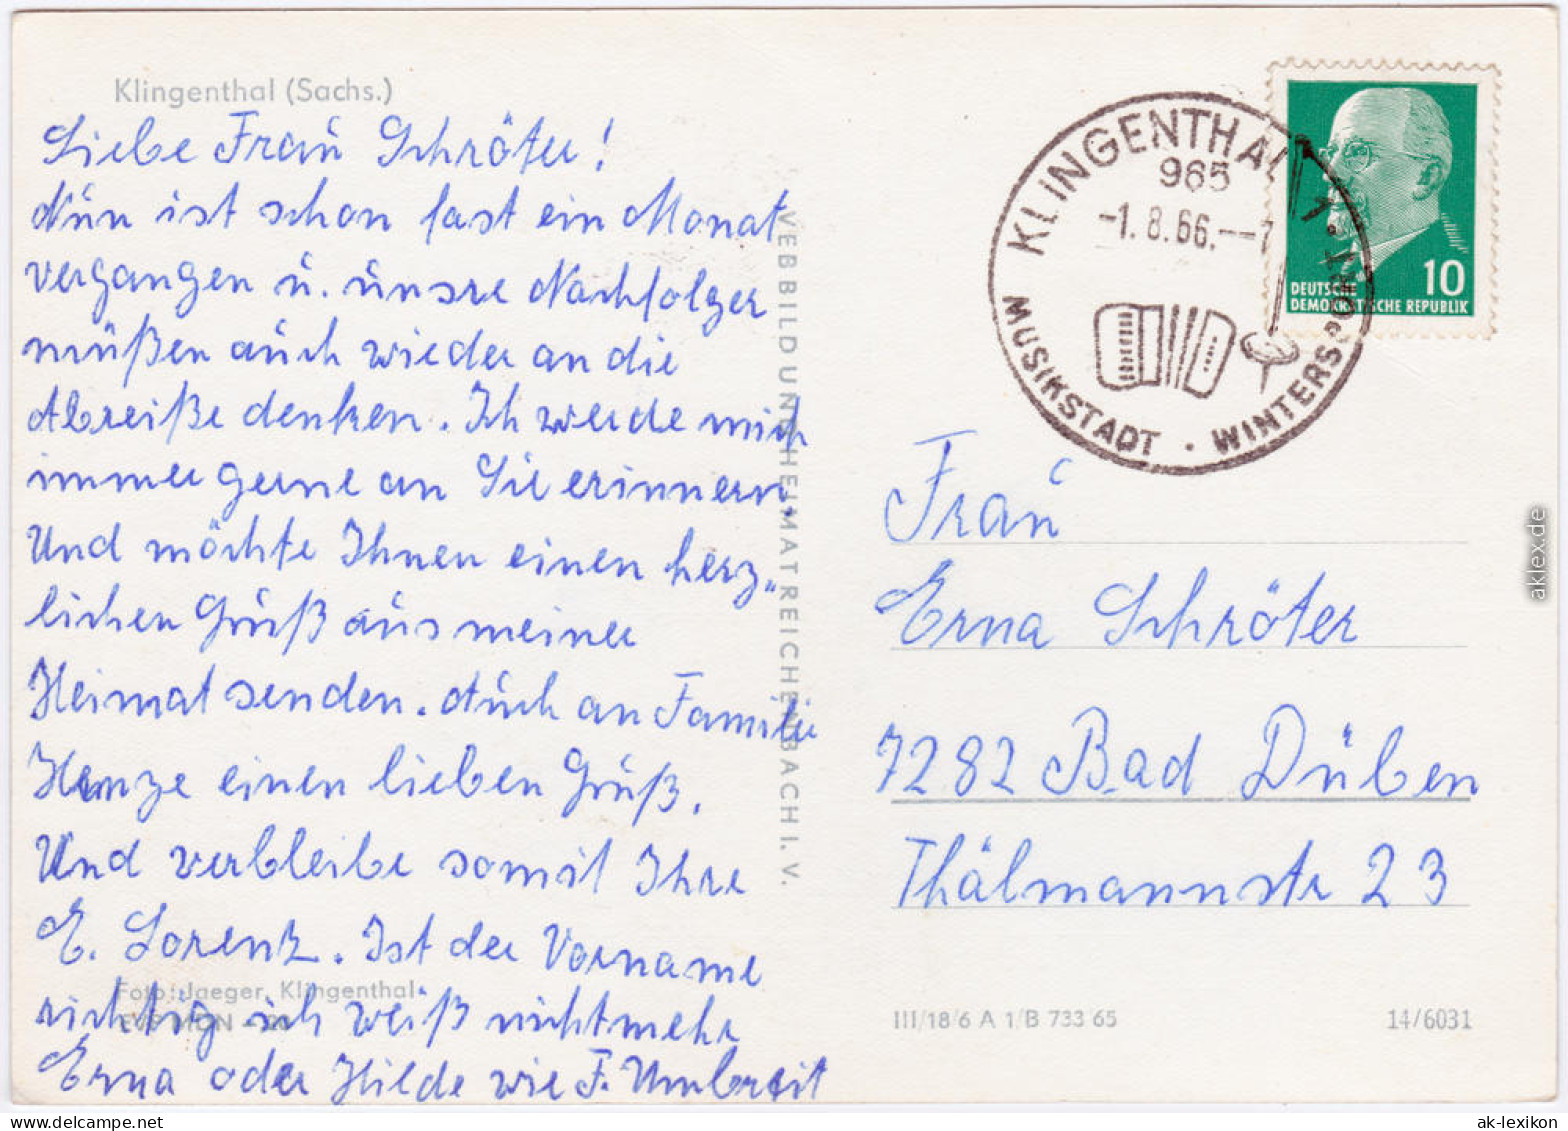 Klingenthal (Sachs.)
Liebe Frau Schröter!
Nun ist schon fast ein Monat
vergangen u. unsre Nachfolger
müßen auch wieder an die
Abreiße denken. Ich werde mich
immer gerne an Sie erinnern.
Und möchte Ihnen einen herz-
lichen Gruß aus meiner
Heimat senden. Auch an Familie
Henze einen lieben Gruß.
Und verbleibe somit Ihre
E. Lorenz. Ist der Vorname
richtig ich weiß nicht mehr
Erna oder Hilde wie F. Umbreit
Foto: Jaeger, Klingenthal
VEB BILD UND HEIMAT REICHENBACH I. V.
KLINGENTHAL 1
965
-1.8.66.--7
MUSIKSTADT · WINTERSPORT
10
DEUTSCHE
DEMOKRATISCHE REPUBLIK
Frau
Erna Schröter
7282 Bad Düben
Thälmannstr 23
III/18/6 A 1/B 733 65
14/6031
aklex.de
ak-lexikon